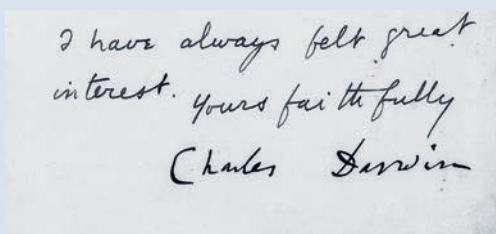 I have always felt great
interest. Yours faithfully
Charles Darwin